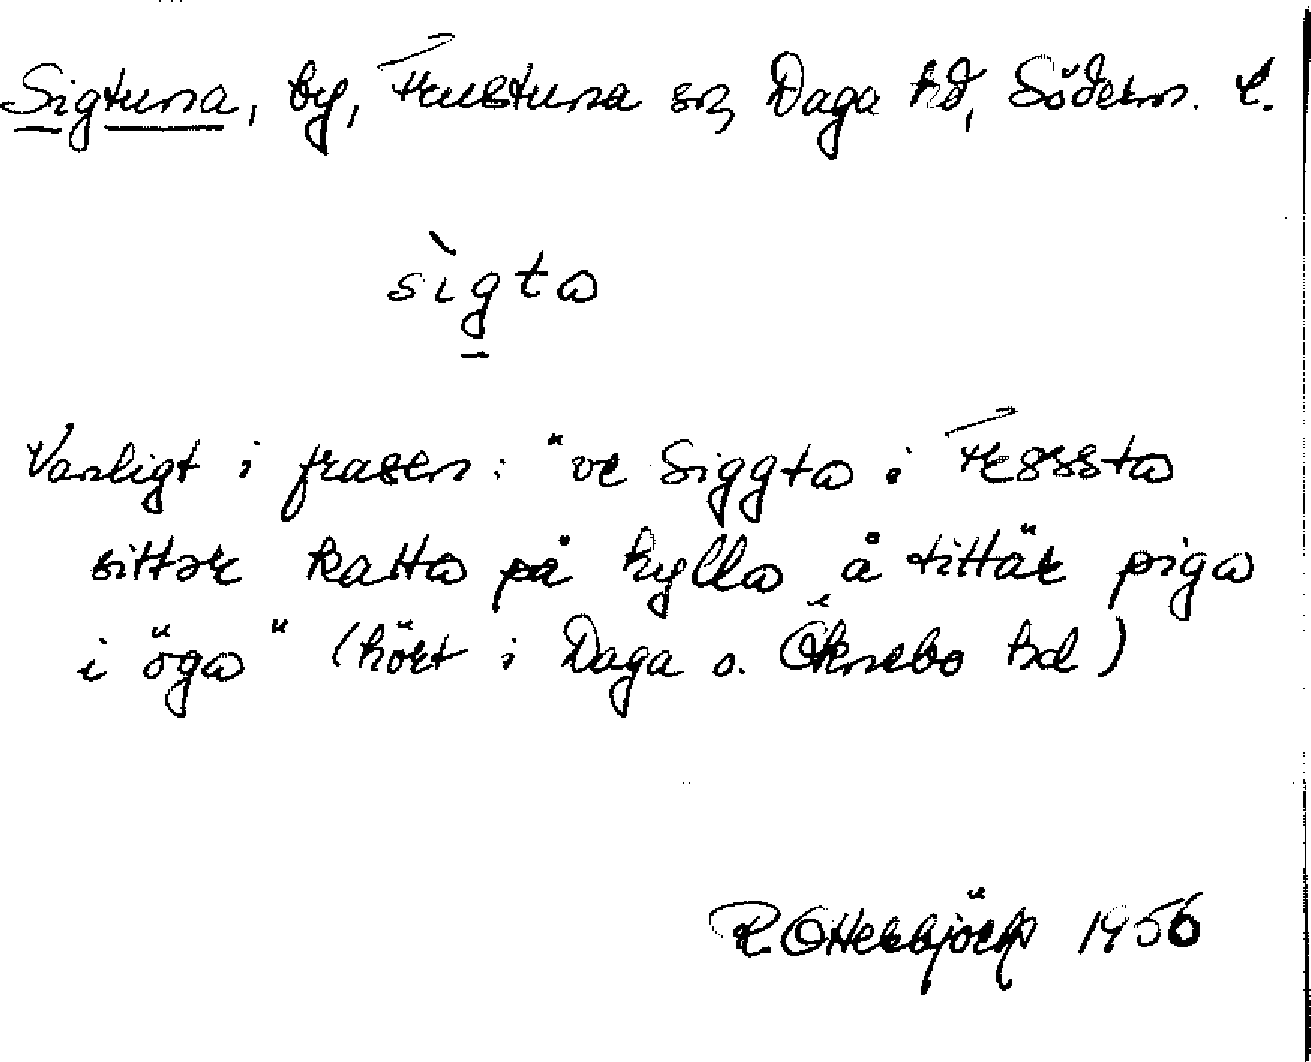 Sigtuna, by, Frustuna sn, Daga hd, Söderm. l.
sìgta
Vanligt i frasen: "ve Siggta i Fressta
sitter katta på hylla å tittär piga
i öga" (hört i Daga o. Öknebo hd)
R. Otterbjörk 1956